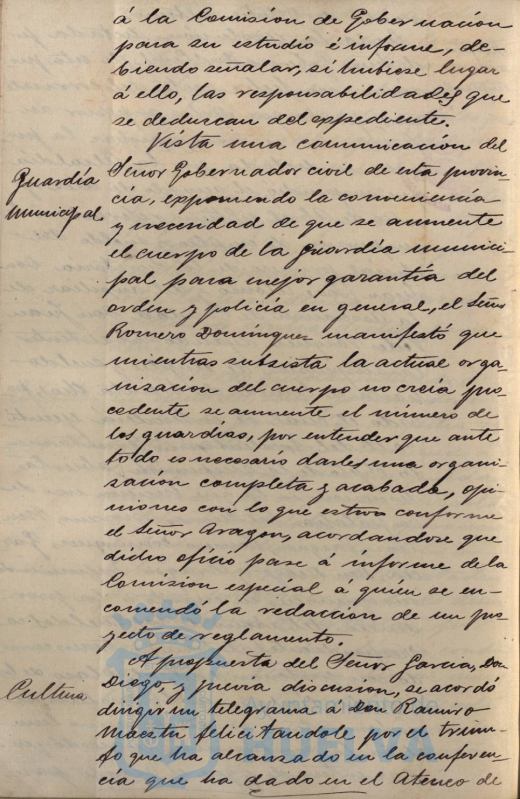 á la Comisión de Gobernación
para su estudio é informe, de-
biendo señalar, si hubiese lugar
á ello, las responsabilidades que
se deduzcan del expediente.
Vista una comunicación del
Guardia
municipal.
Señor Gobernador civil de esta provin-
cia, exponiendo la conveniencia
y necesidad de que se aumente
el cuerpo de la guardia munici-
pal para mejor garantía del
orden y policía en general, el Señor
Romero Domínguez manifestó que
mientras subsista la actual orga-
nización del cuerpo no creía pro-
cedente se aumente el número de
los guardias, por entender que ante
todo es necesario darles una organi-
zación completa y acabada, opi-
niones con lo que estuvo conforme
el Señor Aragon, acordandose que
dicho oficio pase á informe de la
Comision especial á quien se en-
comendó la redaccion de un pro-
yecto de reglamento.
Cultura
A propuesta del Señor Garcia, Don
Diego, y previa discusion, se acordó
dirigir un telegrama á Don Ramiro
Maeztu felicitandole por el triun-
fo que ha alcanzado en la conferen-
cía que ha dado en el Ateneo de
HUELVA